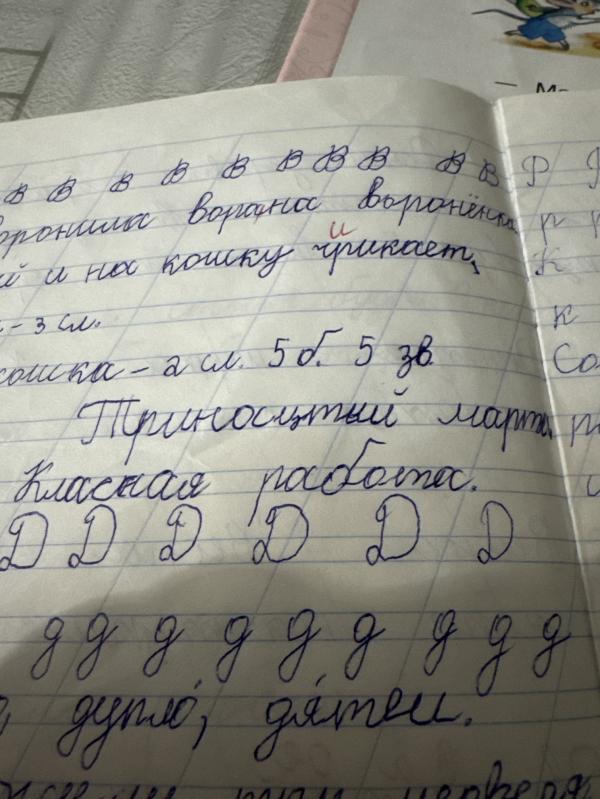 В В В В В В В В В В
воронила ворона воронёнка
й и на кошку чрикает,
- 3 сл.
кошка - 2 сл. 5 б. 5 зв.
Триносцтый марта.
Класная работа.
Д Д Д Д Д Д
д д д д д д д д д
дупло, дятел.
Р
р р
К
к
Со